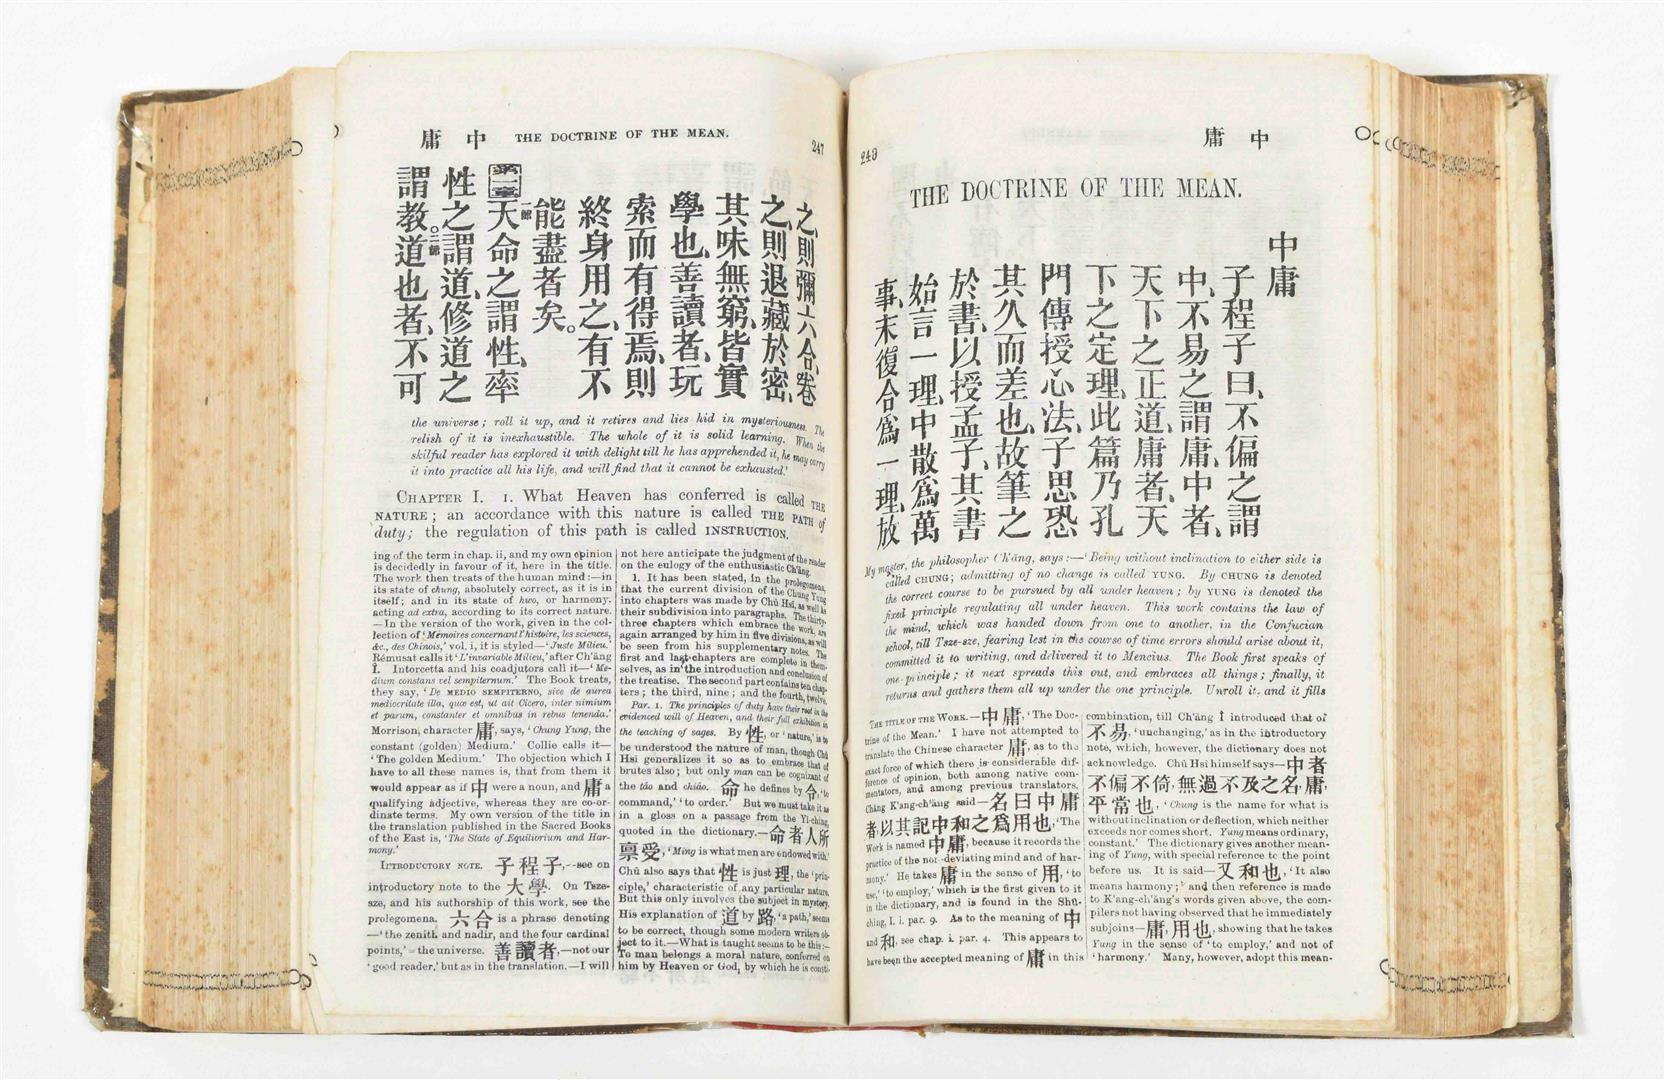 中庸
THE DOCTRINE OF THE MEAN.
中庸
子程子曰、不偏之謂
中、不易之謂庸、中者、
天下之正道、庸者、天
下之定理、此篇乃孔
門傳授心法、子思恐
其久而差也、故筆之
於書、以授孟子、其書
始言一理、中散爲萬
事、末復合爲一理、放
My master, the philosopher Ch'ăng, says:—'Being without inclination to either side is
called CHUNG; admitting of no change is called YUNG. By CHUNG is denoted
the correct course to be pursued by all under heaven; by YUNG is denoted the
fixed principle regulating all under heaven. This work contains the law of
the mind, which was handed down from one to another, in the Confucian
school, till Tsze-sze, fearing lest in the course of time errors should arise about it,
committed it to writing, and delivered it to Mencius. The Book first speaks of
one principle; it next spreads this out, and embraces all things; finally, it
returns and gathers them all up under the one principle. Unroll it, and it fills
THE TITLE OF THE WORK.—中庸, 'The Doc-
trine of the Mean.' I have not attempted to
translate the Chinese character 庸, as to the
exact force of which there is considerable dif-
ference of opinion, both among native com-
mentators, and among previous translators.
Chăng K'ang-ch'ăng said—名曰中庸
者、以其記中和之爲用也, 'The
Work is named 中庸, because it records the
practice of the non-deviating mind and of har-
mony.' He takes 庸 in the sense of 用, 'to
use,' 'to employ,' which is the first given to it
in the dictionary, and is found in the Shû-
ching, I. i. par. 9. As to the meaning of 中
and 和, see chap. i. par. 4. This appears to
have been the accepted meaning of 庸 in this
combination, till Ch'ăng Î introduced that of
不易, 'unchanging,' as in the introductory
note, which, however, the dictionary does not
acknowledge. Chû Hsî himself says—中者
不偏不倚、無過不及之名、庸、
平常也, 'Chung is the name for what is
without inclination or deflection, which neither
exceeds nor comes short. Yung means ordinary,
constant.' The dictionary gives another mean-
ing of Yung, with special reference to the point
before us. It is said—又和也, 'It also
means harmony;' and then reference is made
to K'ang-ch'ăng's words given above, the com-
pilers not having observed that he immediately
subjoins—庸、用也, showing that he takes
Yung in the sense of 'to employ,' and not of
'harmony.' Many, however, adopt this mean-
中庸 THE DOCTRINE OF THE MEAN. 247
之、則彌六合、卷
之、則退藏於密、
其味無窮、皆實
學也、善讀者、玩
索而有得焉、則
終身用之、有不
能盡者矣。
第一章 一節 天命之謂性、率
性之謂道、修道之
謂教。〇二節 道也者、不可
the universe; roll it up, and it retires and lies hid in mysteriousness. The
relish of it is inexhaustible. The whole of it is solid learning. When the
skilful reader has explored it with delight till he has apprehended it, he may carry
it into practice all his life, and will find that it cannot be exhausted.'
CHAPTER I. 1. What Heaven has conferred is called THE
NATURE; an accordance with this nature is called THE PATH of
duty; the regulation of this path is called INSTRUCTION.
ing of the term in chap. ii, and my own opinion
is decidedly in favour of it, here in the title.
The work then treats of the human mind:—in
its state of chung, absolutely correct, as it is in
itself; and in its state of hwo, or harmony,
acting ad extra, according to its correct nature.
—In the version of the work, given in the col-
lection of 'Mémoires concernant l'histoire, les sciences,
&c., des Chinois,' vol. i, it is styled—'Juste Milieu.'
Rémusat calls it 'L'invariable Milieu,' after Ch'ăng
Î. Intorcetta and his coadjutors call it—'Me-
dium constans vel sempiternum.' The Book treats,
they say, 'De MEDIO SEMPITERNO, sive de aurea
mediocritate illa, quæ est, ut ait Cicero, inter nimium
et parum, constanter et omnibus in rebus tenenda.'
Morrison, character 庸, says, 'Chung Yung, the
constant (golden) Medium.' Collie calls it—
'The golden Medium.' The objection which I
have to all these names is, that from them it
would appear as if 中 were a noun, and 庸 a
qualifying adjective, whereas they are co-or-
dinate terms. My own version of the title in
the translation published in the Sacred Books
of the East is, 'The State of Equilibrium and Har-
mony.'
INTRODUCTORY NOTE. 子程子,—see on
introductory note to the 大學. On Tsze-
sze, and his authorship of this work, see the
prolegomena. 六合 is a phrase denoting
—'the zenith and nadir, and the four cardinal
points,' = the universe. 善讀者,—not our
'good reader,' but as in the translation.—I will
not here anticipate the judgment of the reader
on the eulogy of the enthusiastic Ch'ăng.
1. It has been stated, in the prolegomena,
that the current division of the Chung Yung
into chapters was made by Chû Hsî, as well as
their subdivision into paragraphs. The thirty-
three chapters which embrace the work, are
again arranged by him in five divisions, as will
be seen from his supplementary notes. The
first and last chapters are complete in them-
selves, as in the introduction and conclusion of
the treatise. The second part contains ten chap-
ters; the third, nine; and the fourth, twelve.
Par. 1. The principles of duty have their root in the
evidenced will of Heaven, and their full exhibition in
the teaching of sages. By 性, or 'nature,' is to
be understood the nature of man, though Chû
Hsî generalizes it so as to embrace that of
brutes also; but only man can be cognizant of
the tâo and chiâo. 命 he defines by 令, 'to
command,' 'to order.' But we must take it as
in a gloss on a passage from the Yî-ching,
quoted in the dictionary.—命者人所
稟受, 'Ming is what men are endowed with.'
Chû also says that 性 is just 理, the 'prin-
ciple,' characteristic of any particular nature.
But this only involves the subject in mystery.
His explanation of 道 by 路, 'a path,' seems
to be correct, though some modern writers ob-
ject to it.—What is taught seems to be this:—
To man belongs a moral nature, conferred on
him by Heaven or God, by which he is consti-